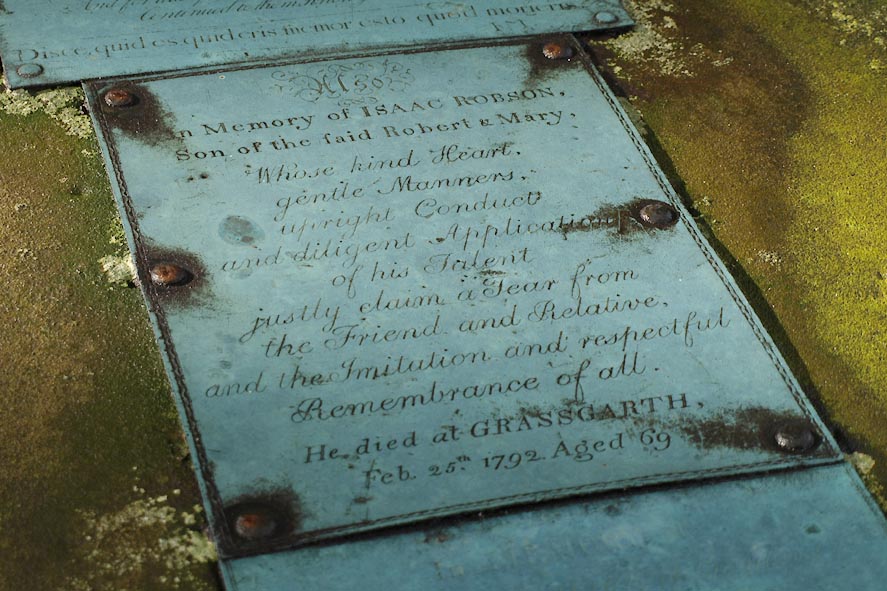 Disce, quid es quid eris memor esto quod morieris
Also
In Memory of ISAAC ROBSON,
Son of the ſaid Robert & Mary,
Whose kind Heart,
gentle Manners,
upright Conduct
and diligent Application
of his Talent
justly claim a Tear from
the Friend and Relative,
and the Imitation and respectful
Remembrance of all.
He died at GRASSGARTH,
Feb. 25th. 1792 Aged 69